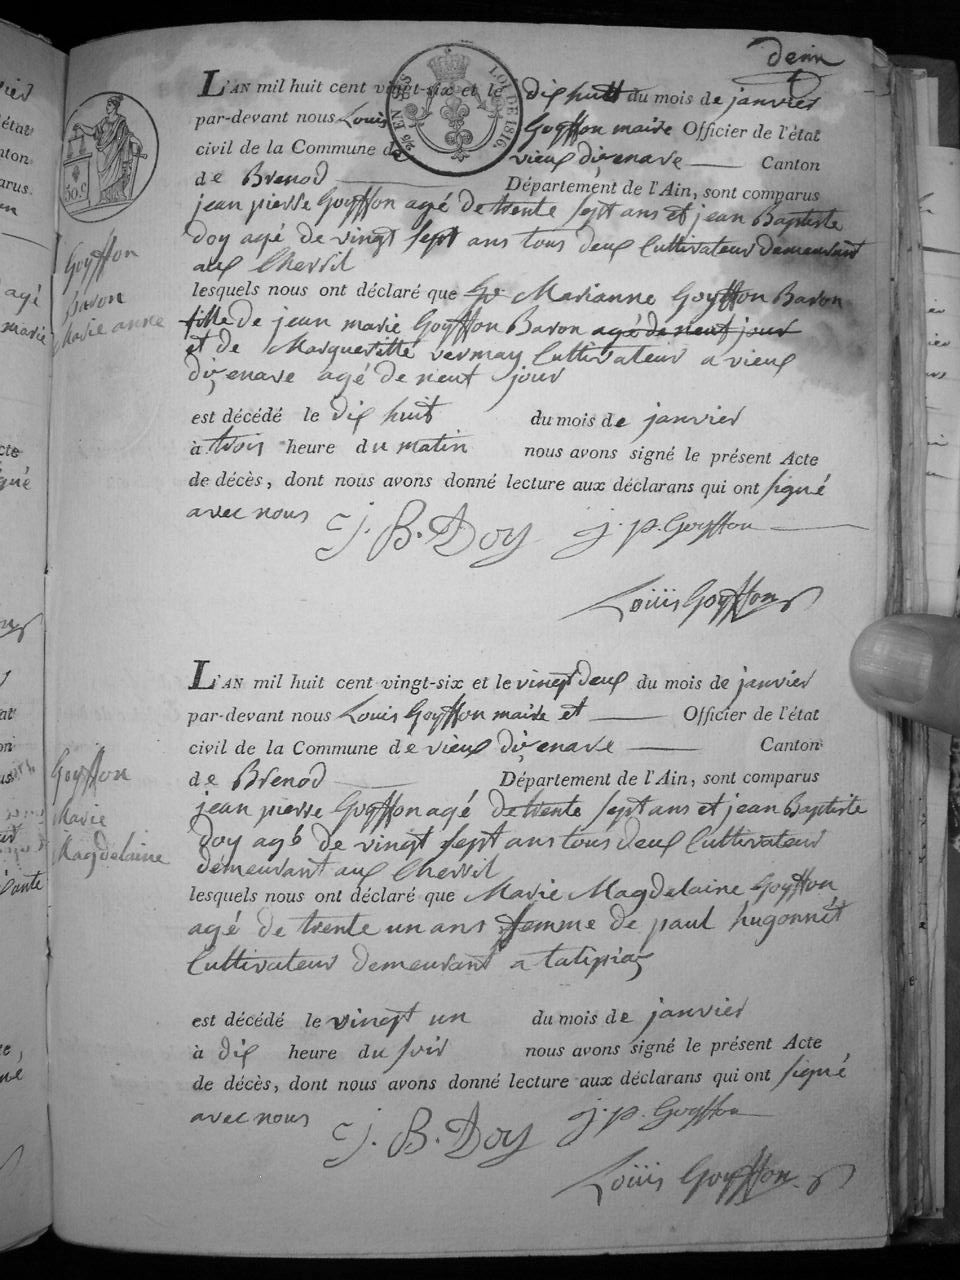 L'AN mil huit cent vingt-six et le dix huit du mois de janvier
par-devant nous Louis Goyffon maire Officier de l'état
civil de la Commune de vieux d'izenave Canton
de Brenod Département de l'Ain, sont comparus
jean pierre Goyffon agé de trente sept ans et jean Baptiste
Doy agé de vingt sept ans tous deux Cultivateur demeurant
aux Chevril
lesquels nous ont déclaré que Marianne Goyffon Baron
fille de jean marie Goyffon Baron agé de neuf jour
et de Margueritte vermay Cultivateur a vieux
d'izenave agé de neuf jour
est décédé le dix huit du mois de janvier
à trois heure du matin nous avons signé le présent Acte
de décès, dont nous avons donné lecture aux déclarans qui ont signé
avec nous J. B. Doy j. p. Goyffon
Loüis Goyffon
Goyffon
Baron
Marie anne
50 C.
LOI DE 1816
L'AN mil huit cent vingt-six et le vingt deux du mois de janvier
par-devant nous Louis Goyffon maire et Officier de l'état
civil de la Commune de vieux d'izenave Canton
de Brenod Département de l'Ain, sont comparus
jean pierre Goyffon agé de trente sept ans et jean Baptiste
Doy agé de vingt sept ans tous deux Cultivateur
demeurant aux Chevril
lesquels nous ont déclaré que Marie Magdelaine Goyffon
agé de trente un ans femme de paul hugonnet
Cultivateur demeurant a
est décédé le vingt un du mois de janvier
à dix heure du soir nous avons signé le présent Acte
de décès, dont nous avons donné lecture aux déclarans qui ont signé
avec nous J. B. Doy j. p. Goyffon
Loüis Goyffon
Goyffon
Marie
Magdelaine